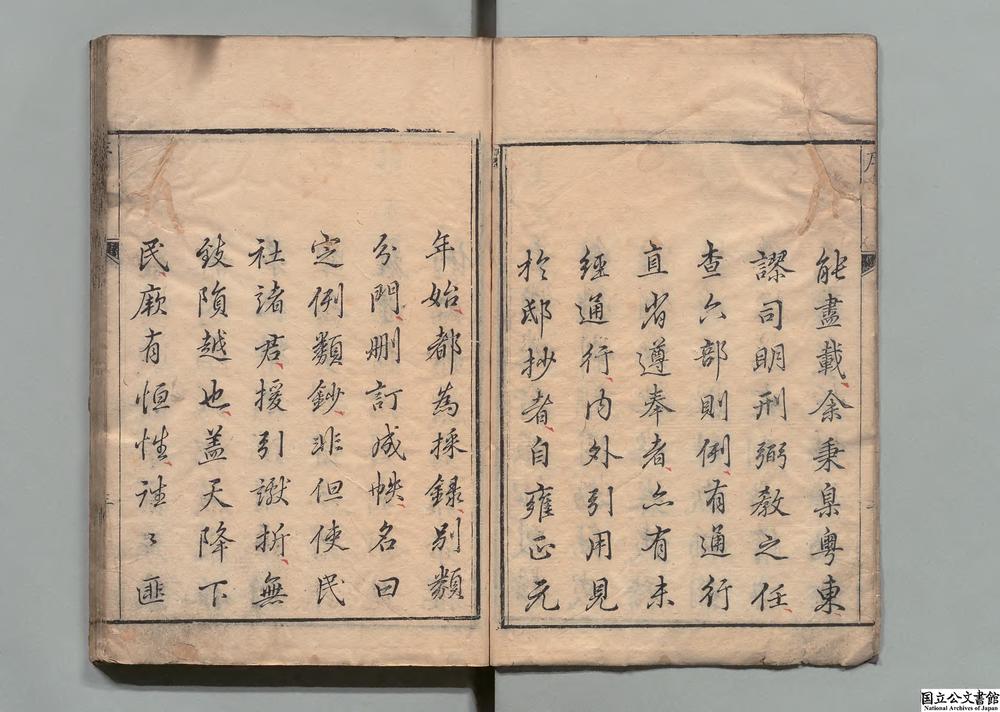 能盡載余秉臬粤東
謬司明刑弼教之任
查六部則例有通行
直省遵奉者亦有未
經通行内外引用見
於邸抄者自雍正元
年始都為採録別類
分門刪訂成帙名曰
定例類鈔非但使民
社諸君援引讞折無
致隕越也盖天降下
民厥有恒性蚩〻匪
国立公文書館
National Archives of Japan